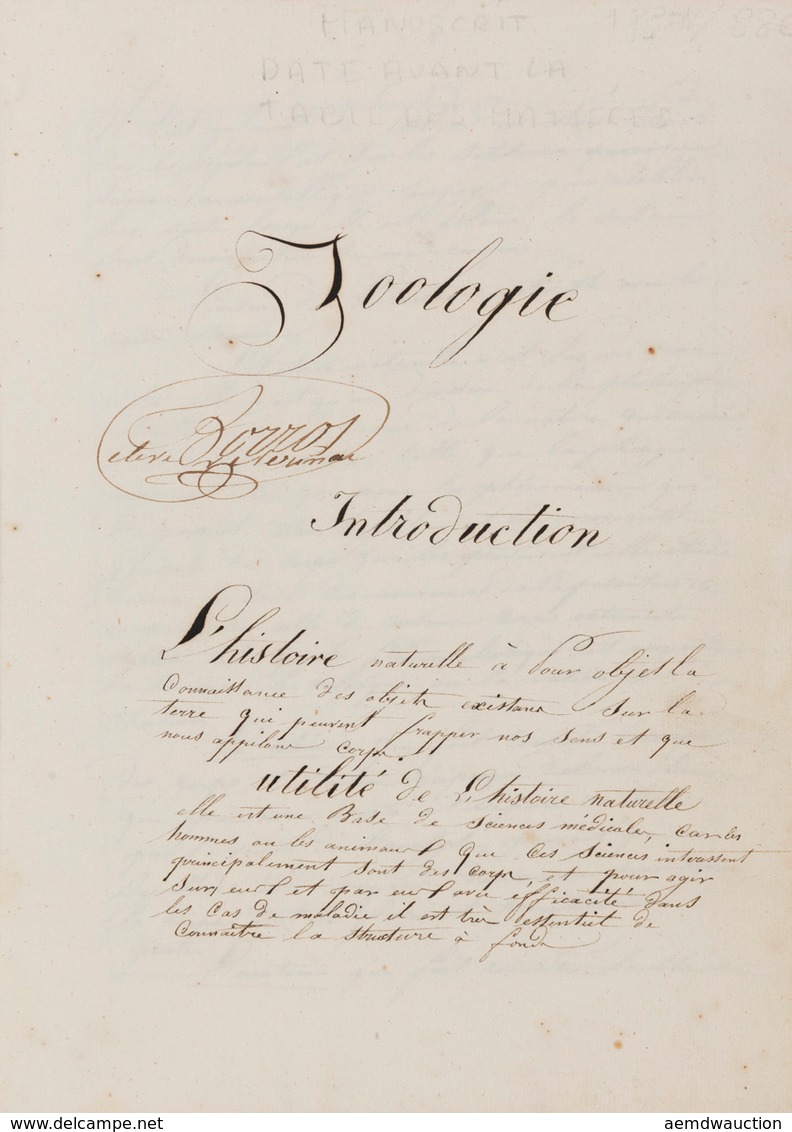 MANUSCRIT
DATE AVANT LA
TABLE DES MATIERES
Zoologie
Introduction
L'histoire naturelle à Pour objet la
connaissance des objets existans sur la
terre qui peuvent frapper nos sens et que
nous appelons corps.
utilité de L'histoire naturelle
elle est une Base de sciences médicales, car les
hommes ou les animaux que ces sciences interessent
principalement sont des corps, et pour agir
sur eux et par eux avec efficacité dans
les cas de maladie il est très essentiel de
connaitre la structure à fond
delcampe.net
aemdwauction